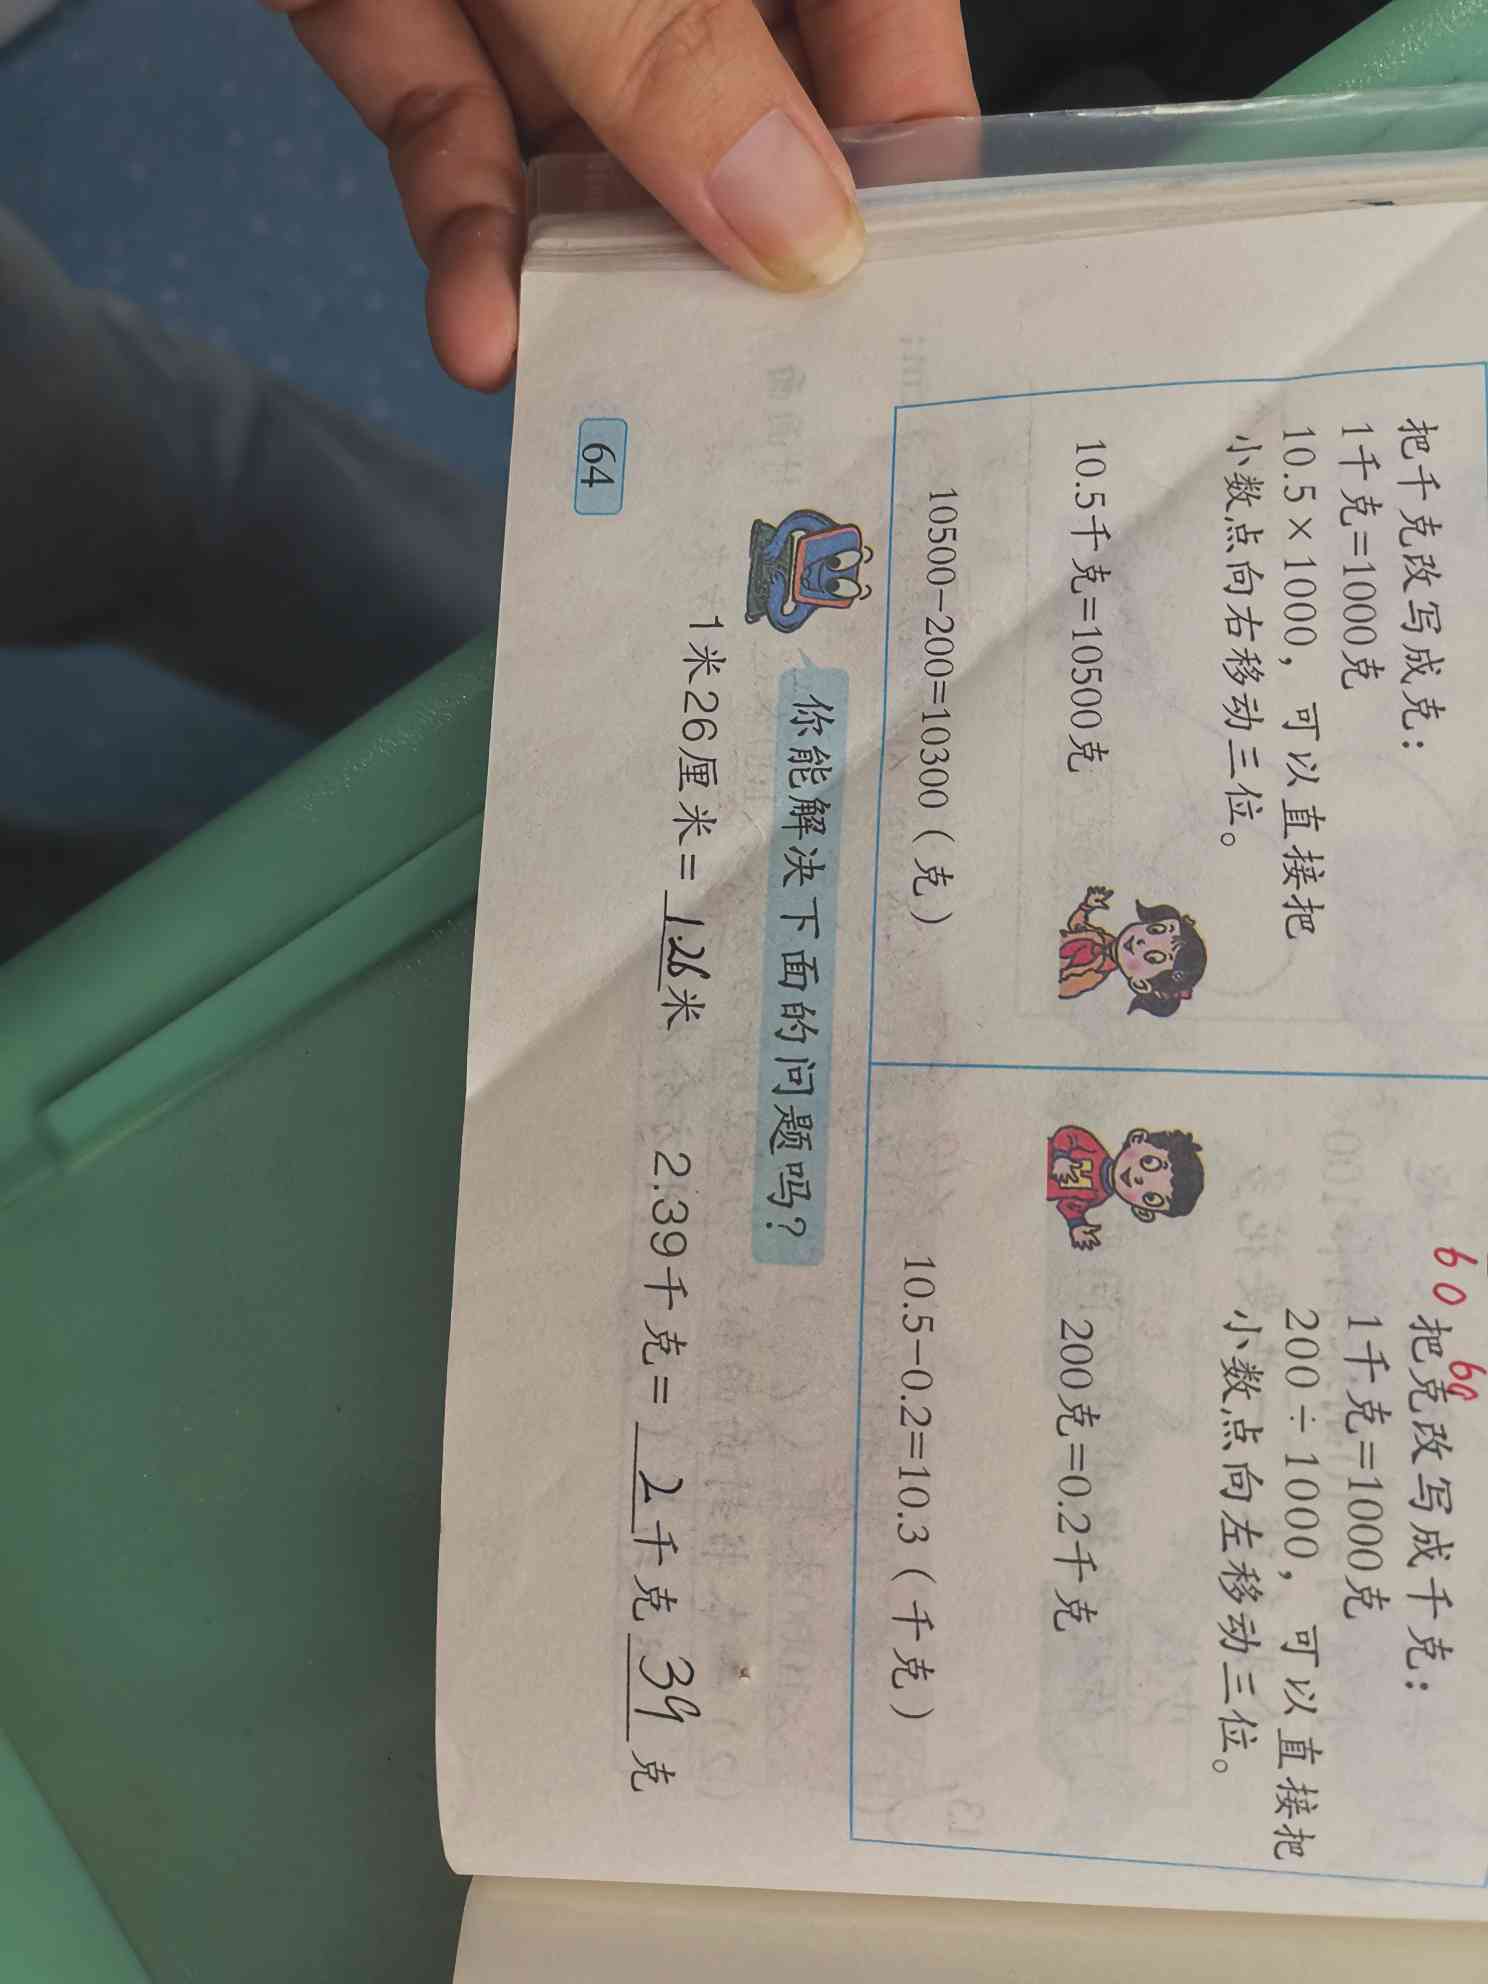 把千克改写成克：
1千克=1000克
10.5×1000，可以直接把
小数点向右移动三位。
10.5千克=10500克
10500-200=10300（克）
60
60
把克改写成千克：
1千克=1000克
200÷1000，可以直接把
小数点向左移动三位。
200克=0.2千克
10.5-0.2=10.3（千克）
你能解决下面的问题吗？
1米26厘米=1.26米 2.39千克=2千克39克
64